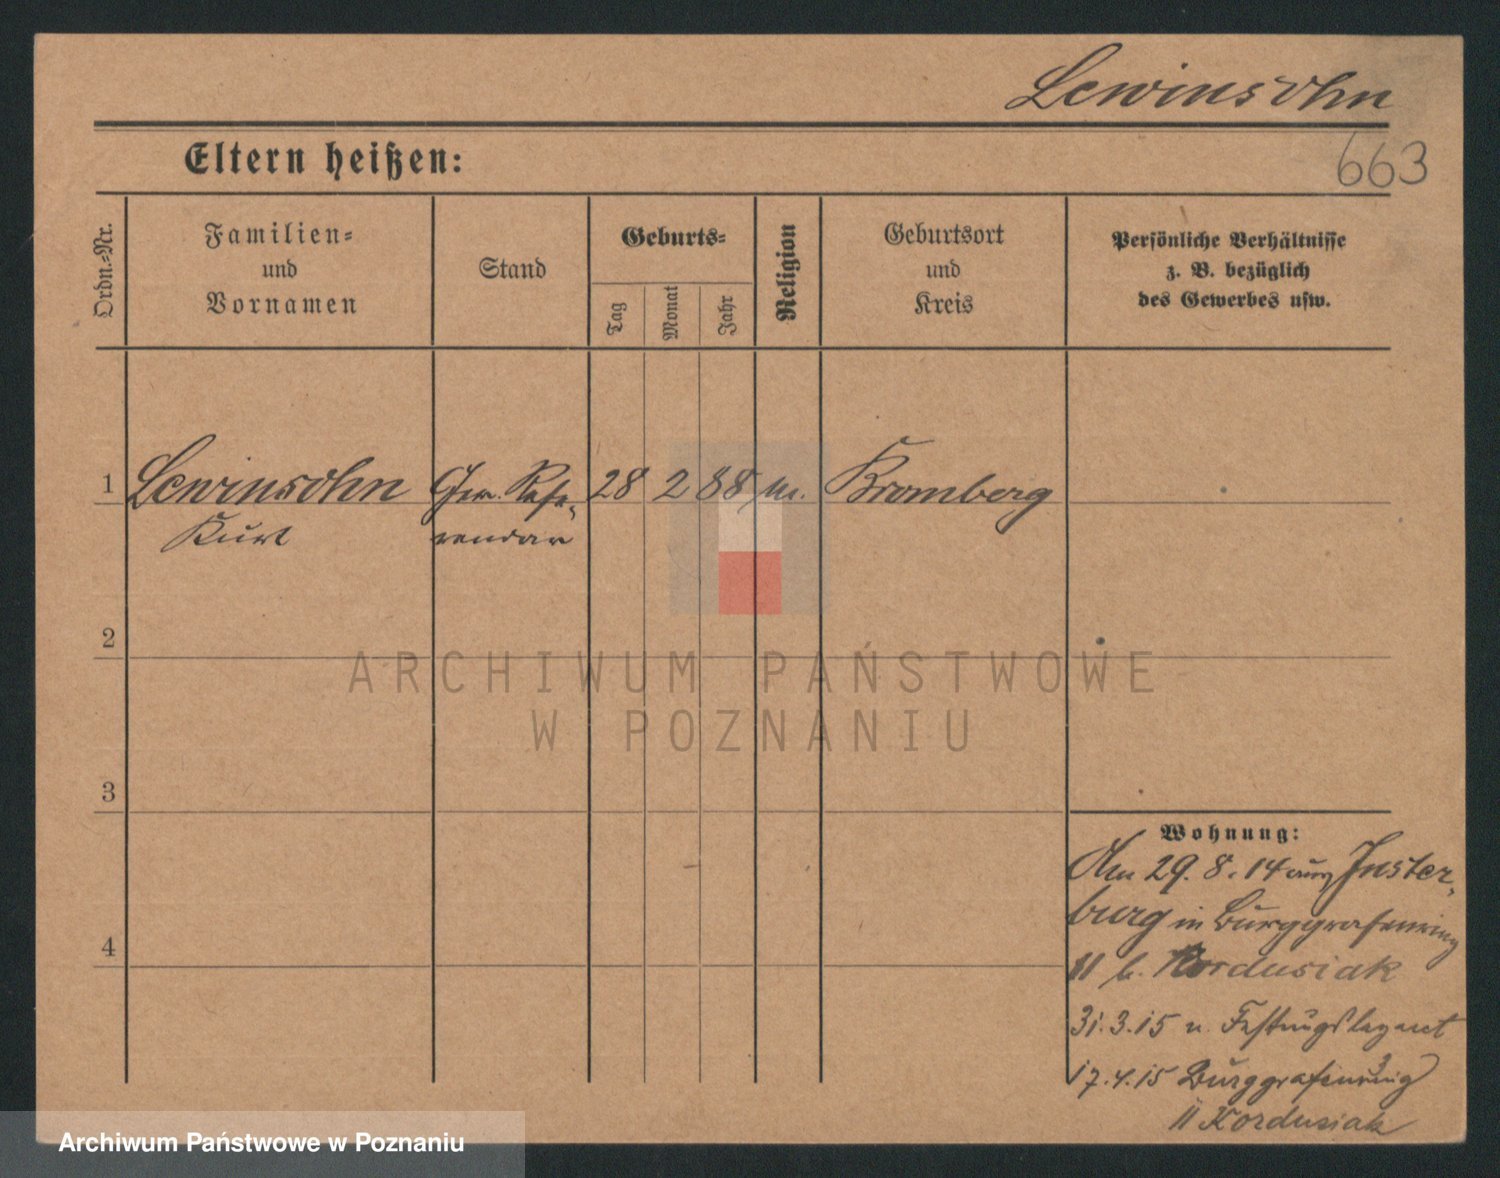 Lewinsohn
663
Eltern heißen:
Ordn.-Nr.
Familien-
und
Vornamen
Stand
Geburts-
Tag
Monat
Jahr
Religion
Geburtsort
und
Kreis
Persönliche Verhältnisse
z. B. bezüglich
des Gewerbes usw.
1 Lewinsohn Ger. Refe- 28 2 88 m. Bromberg
Kurt rendar
2
3
4
Wohnung:
Am 29. 8. 14 aus Inster-
burg in Burggrafenring
11 b. Kordusiak
31.3.15 n. Festungslazaret
17.4.15 Burggrafenring 3
II Kordusiak
ARCHIWUM PAŃSTWOWE
W POZNANIU
Archiwum Państwowe w Poznaniu